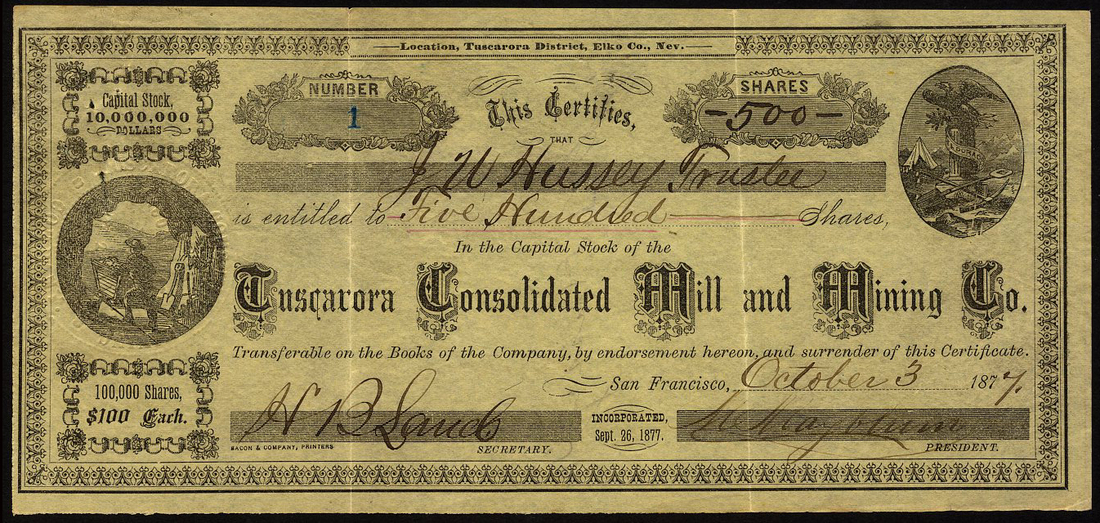 Location, Tuscarora District, Elko Co., Nev.
Capital Stock,
10,000,000
DOLLARS
NUMBER
1
This Certifies,
THAT
SHARES
-500-
J W Hussey Trustee
is entitled to Five Hundred Shares,
In the Capital Stock of the
Tusqarora Consolidated Mill and Mining Co.
Transferable on the Books of the Company, by endorsement hereon, and surrender of this Certificate.
100,000 Shares,
$100 Each.
San Francisco, October 3 1877.
INCORPORATED,
Sept. 26, 1877.
BACON & COMPANY, PRINTERS
SECRETARY.
PRESIDENT.